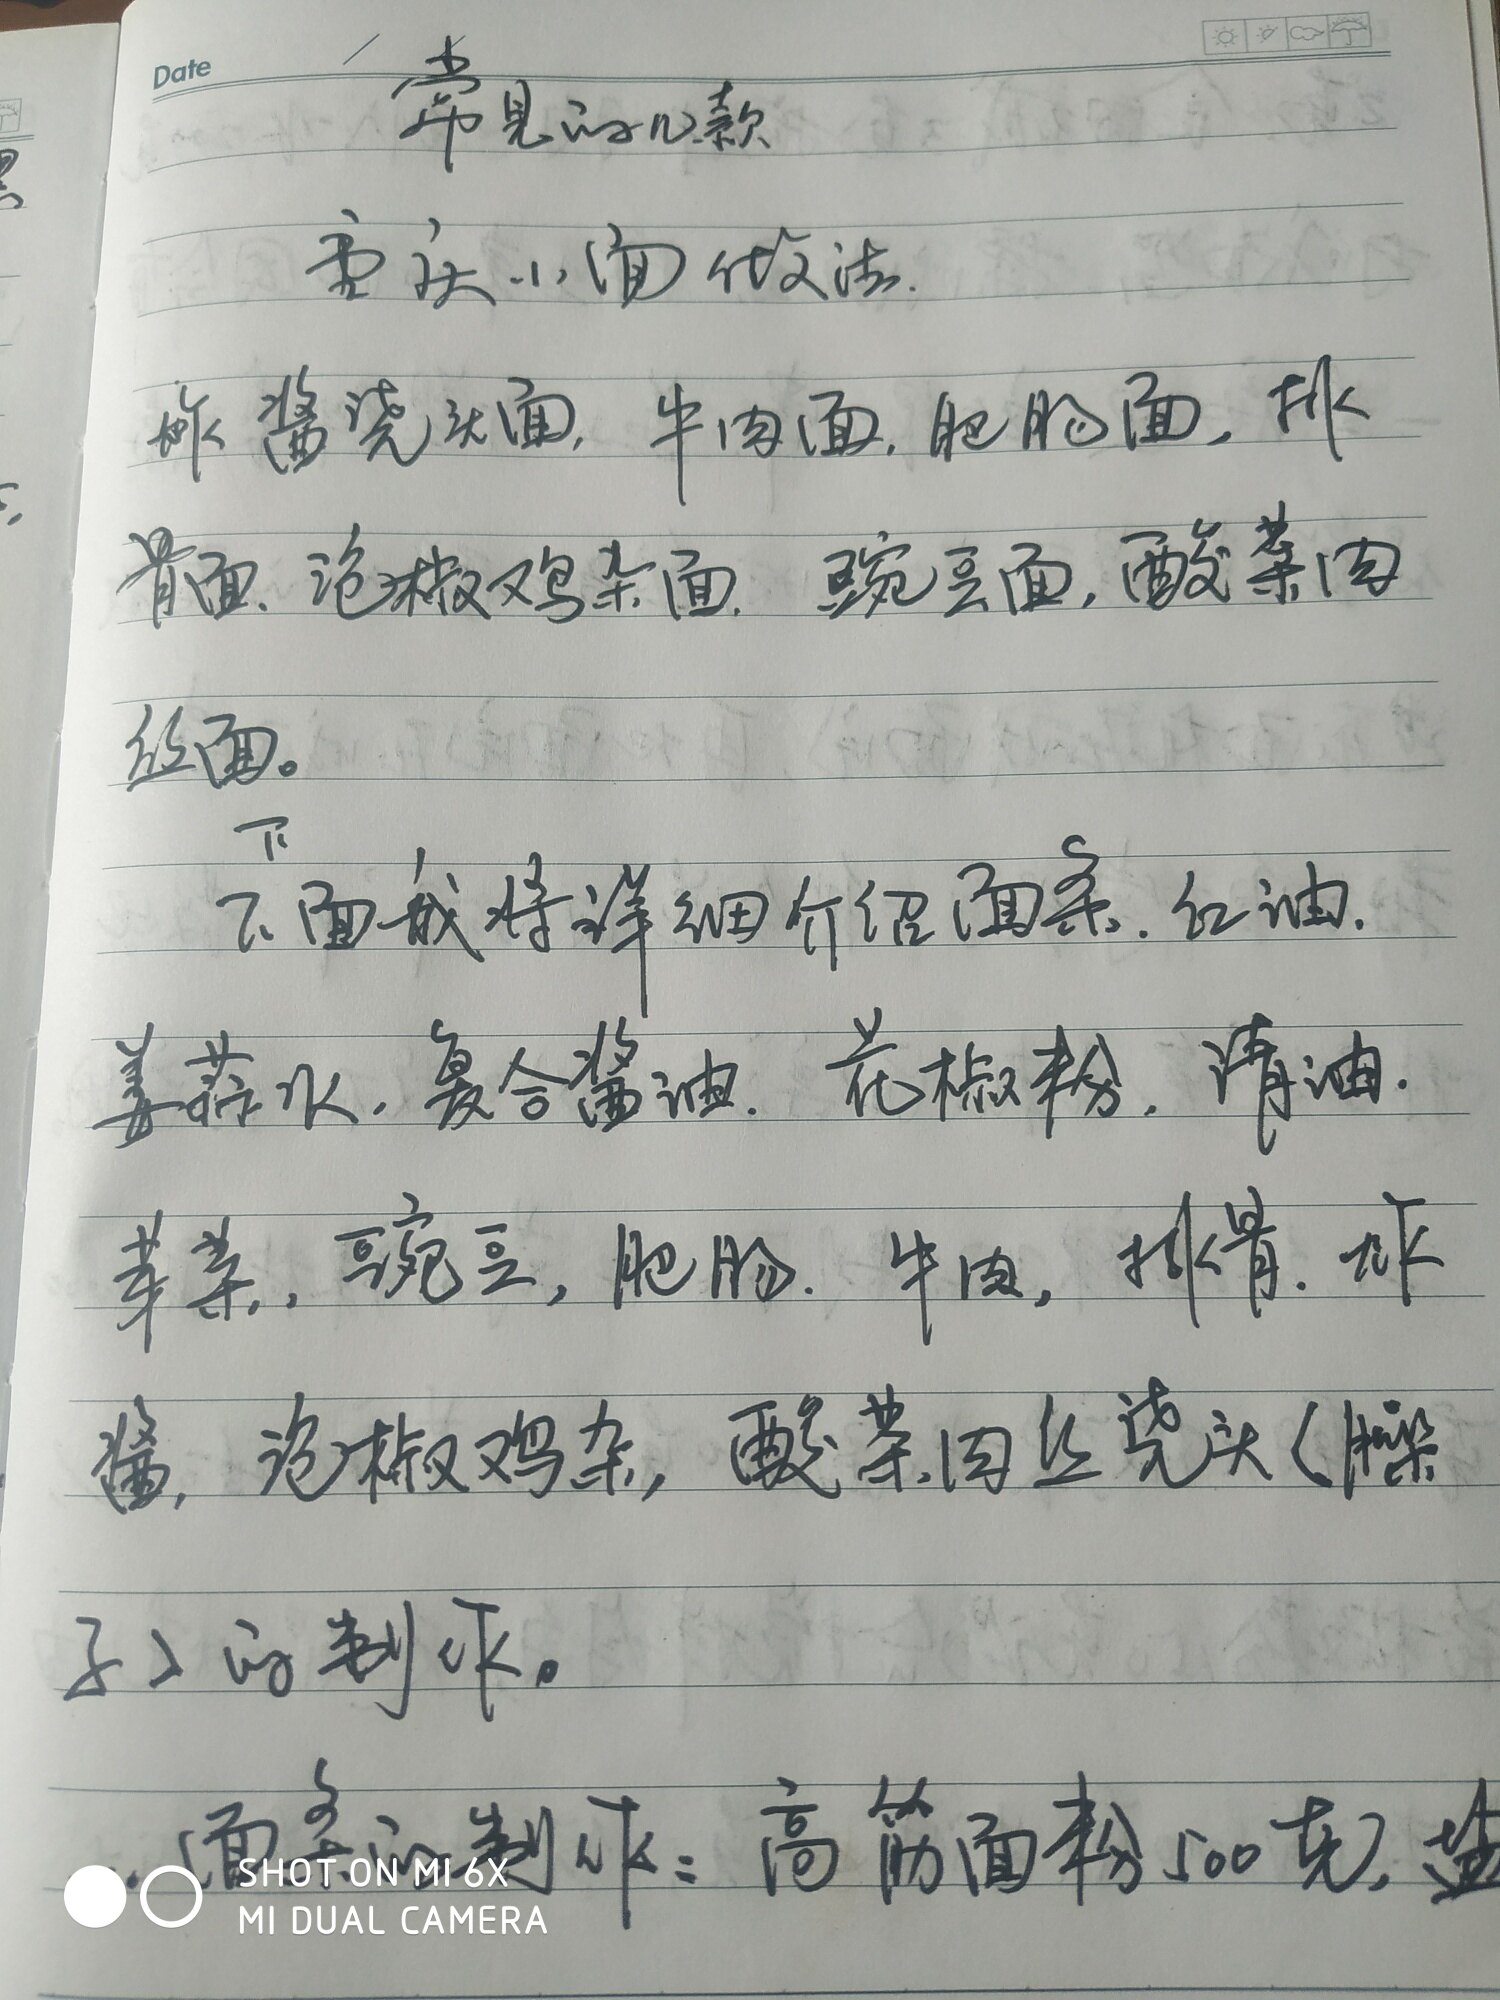 Date
常见的几款
重庆小面做法.
炸酱浇头面, 牛肉面, 肥肠面, 排
骨面. 泡椒鸡杂面. 豌豆面, 酸菜肉
丝面。
下
下面我将详细介绍面条. 红油.
姜蒜水, 复合酱油. 花椒粉, 清油.
芽菜, 豌豆, 肥肠. 牛肉, 排骨. 炸
酱, 泡椒鸡杂, 酸菜肉丝浇头(臊
子)的制作。
面条的制作: 高筋面粉500克, 盐
SHOT ON MI 6X
MI DUAL CAMERA